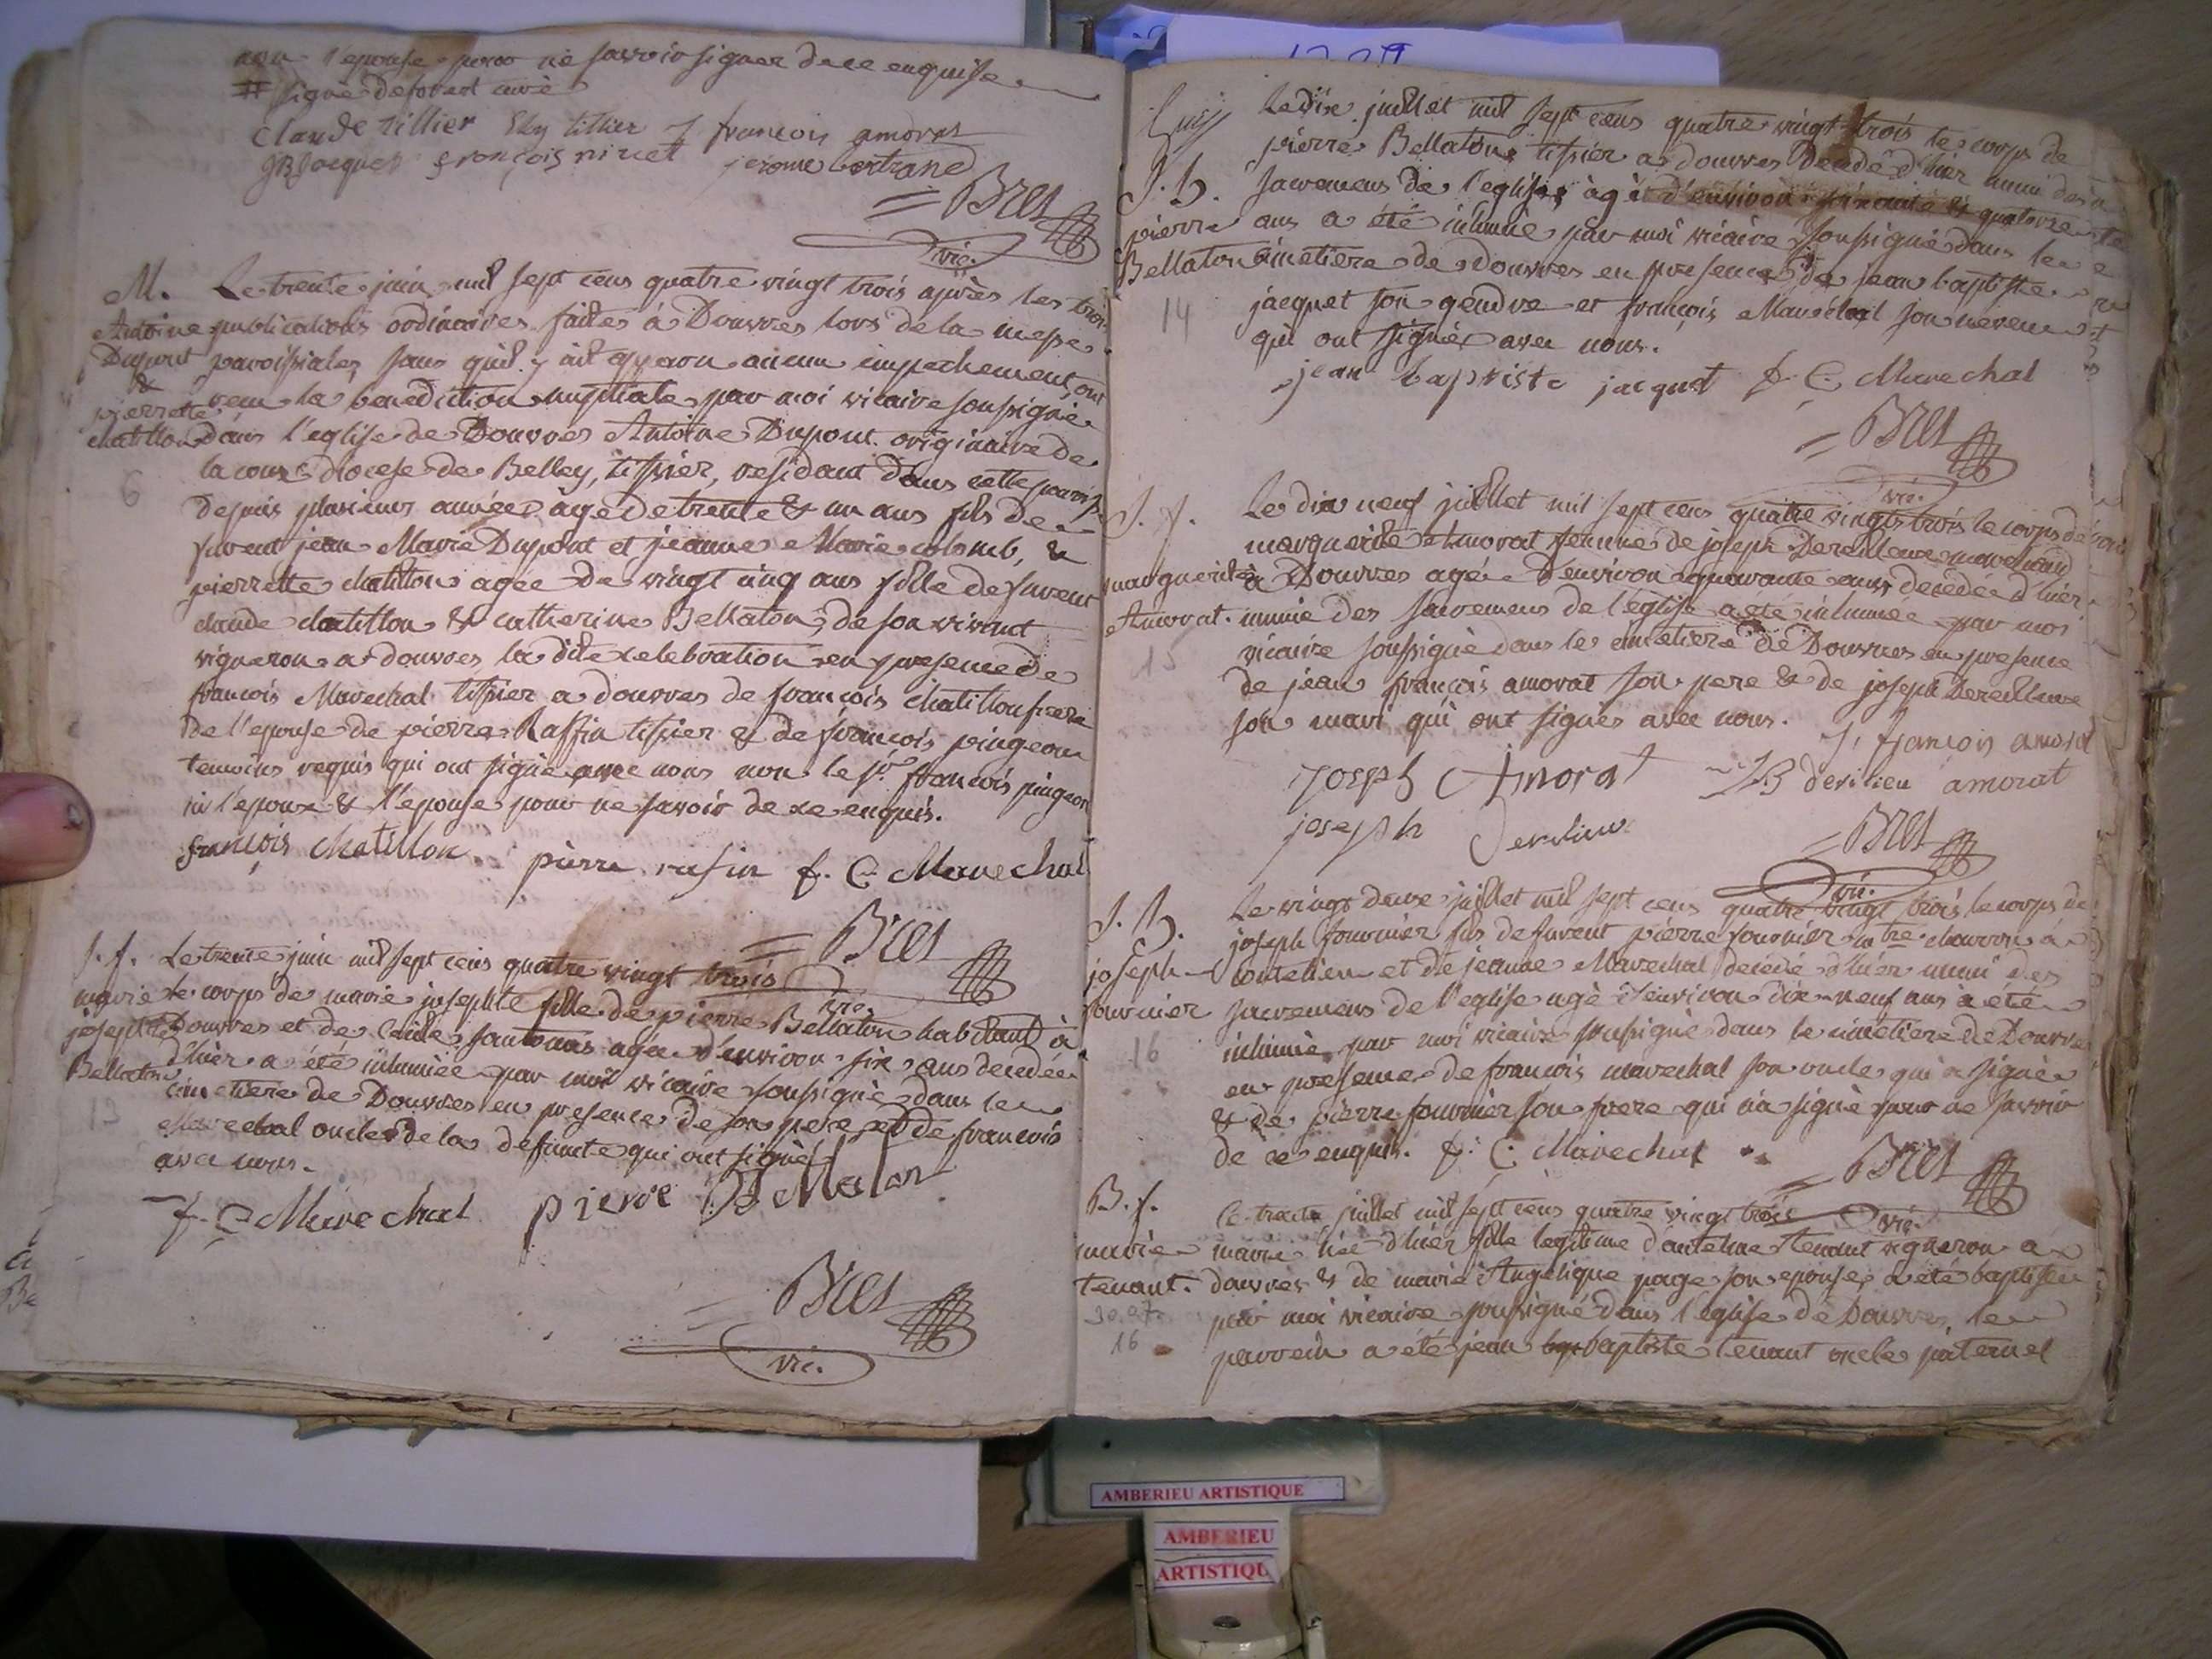 non l'epouse pour ne savoir signer de ce enquise
# signé deforest curé
Claude tillier Eloy tillier J francois amorat
JB Jacquet françois ninet jerome bertrand
= Bret
vic.
M. Le trente juin mil sept cens quatre vingt trois après les trois
Antoine publications ordinaires faites à Douvres lors de la messe
Dupont paroissiales sans quil y ait apparu aucun empechement, ont
&
pierrette recu la benediction nuptiale par moi vicaire soussigné
chatillon dans l'eglise de Douvres Antoine Dupont originaire de
la cour diocese de Belley, tissier, residant dans cette paroisse
6
depuis plusieur années agé de trente & un ans fils de
furent jean Marie Dupont et jeanne Marie colomb, &
pierrette chatillon agée de vingt cinq ans fille de furent
claude chatillon & catherine Bellaton, de son vivant
vigneron a douvres la dite celebration en presence de
francois Marechal tissier a douvres de françois chatillon frere
de l'epouse de pierre Raffin tissier & de francois pingeon
temoins requis qui ont signé avec nous non le sr. francois pingeon
ni l'epoux & l'epouse pour ne savoir de ce enquis.
françois chatillon pierre rafin f. C. Marechal
= Bret
vic.
S. f. Le trente juin mil sept cens quatre vingt trois
marie le corps de marie josephte fille de pierre Bellaton habitant à
josephte Douvres et de agée d'environ six ans decedée
Bellaton d'hier a été inhumée par moi vicaire soussigné dans le
13 cimetiere de Douvres en presence de son pere et de francois
Marechal oncle de la defunte qui ont signé
avec nous.
f. C. Marechal pierre Bellaton
= Bret
vic.
Le dix juillet mil sept cens quatre vingt trois le corps de
pierre Bellaton tissier a douvres decedé d'hier muni des
S. h. sacremens de l'eglise agé d'environ soixante & quatorze
pierre ans a été inhumé par moi vicaire soussigné dans le
Bellaton cimetiere de douvres en presence de jean baptiste
14 jacquet son gendre et françois Marechal son neveu
qui ont signé avec nous.
jean baptiste jacquet f. C. Marechal
= Bret
vic.
S. f. Le dix neuf juillet mil sept cens quatre vingts trois le corps de
marguerite Amorat femme de joseph marchand
marguerite à Douvres agée d'environ quarante ans decedée d'hier
Amorat. munie des sacremens de l'église a été inhumée par moi
15 vicaire soussigné dans le cimetiere de Douvres en presence
de jean françois amorat son pere & de joseph
son mari qui ont signés avec nous.
J, françois amorat
Joseph Amorat JB derilieu amorat
joseph
= Bret
vic.
S. h. Le vingt deux juillet mil sept cens quatre vingt trois le corps de
joseph fournier fils de furent pierre fournier mtre. charron à
joseph et de jeanne Marechal decedé d'hier muni des
fournier sacremens de l'eglise agé d'environ dix neuf ans a été
16 inhumé par moi vicaire soussigné dans le cimetiere de Douvres
en presence de francois marechal son oncle qui a signé
& de pierre fournier son frere qui n'a signé pour ne savoir
de ce enquis. f. C. Marechal
= Bret
vic.
B. f. Le trente juillet mil sept cens quatre vingt trois
marie marie née d'hier fille legitime d'antelme tenant vigneron a
tenant. douvres & de marie Angelique page son epouse, a été baptisée
par moi vicaire soussigné dans l'eglise de Douvres, le
16 parrein a été jean baptiste tenant oncle paternel
AMBERIEU ARTISTIQUE
AMBERIEU
ARTISTIQU